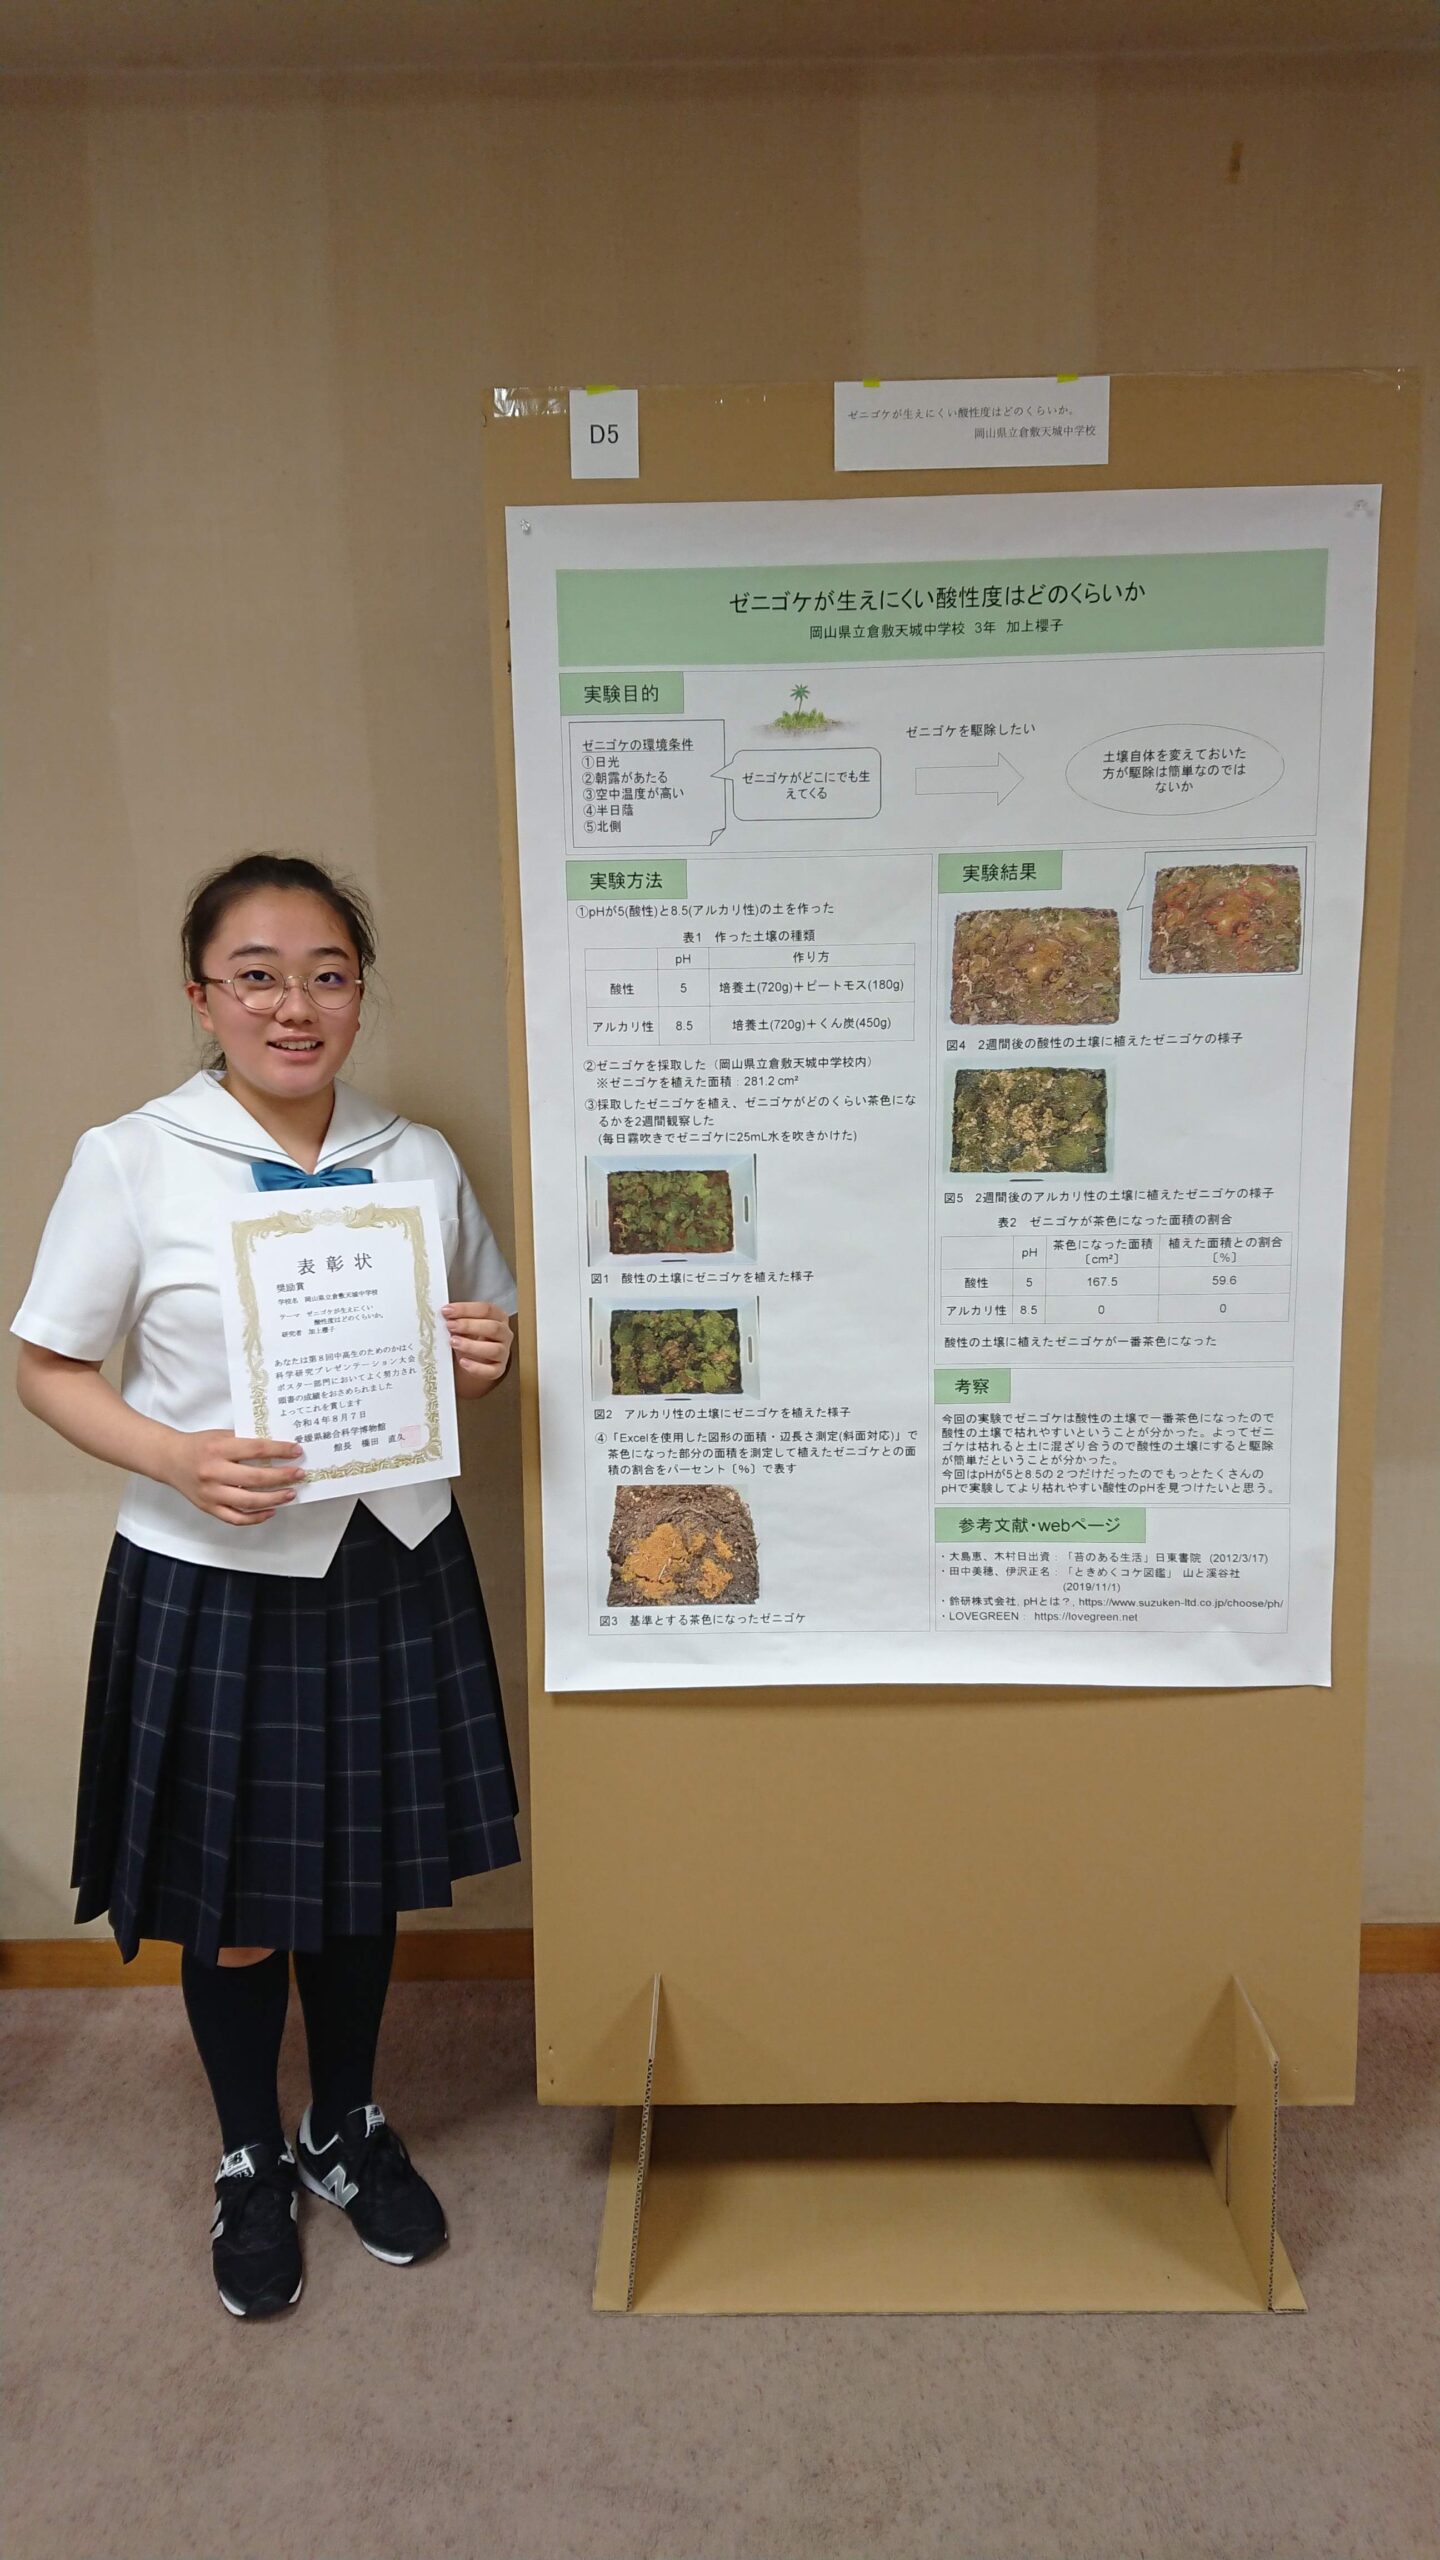 D5
ゼニゴケが生えにくい酸性度はどのくらいか。
岡山県立倉敷天城中学校
ゼニゴケが生えにくい酸性度はどのくらいか
岡山県立倉敷天城中学校 3年 加上櫻子
実験目的
ゼニゴケの環境条件
①日光
②朝露があたる
③空中温度が高い
④半日蔭
⑤北側
ゼニゴケがどこにでも生
えてくる
ゼニゴケを駆除したい
土壌自体を変えておいた
方が駆除は簡単なのでは
ないか
実験方法
①pHが5(酸性)と8.5(アルカリ性)の土を作った
表1 作った土壌の種類
pH 作り方
酸性 5 培養土(720g)+ピートモス(180g)
アルカリ性 8.5 培養土(720g)+くん炭(450g)
②ゼニゴケを採取した(岡山県立倉敷天城中学校内)
※ゼニゴケを植えた面積:281.2 cm²
③採取したゼニゴケを植え、ゼニゴケがどのくらい茶色にな
るかを2週間観察した
(毎日霧吹きでゼニゴケに25mL水を吹きかけた)
図1 酸性の土壌にゼニゴケを植えた様子
図2 アルカリ性の土壌にゼニゴケを植えた様子
④「Excelを使用した図形の面積・辺長さ測定(斜面対応)」で
茶色になった部分の面積を測定して植えたゼニゴケとの面
積の割合をパーセント〔%〕で表す
図3 基準とする茶色になったゼニゴケ
実験結果
図4 2週間後の酸性の土壌に植えたゼニゴケの様子
図5 2週間後のアルカリ性の土壌に植えたゼニゴケの様子
表2 ゼニゴケが茶色になった面積の割合
pH 茶色になった面積〔cm²〕 植えた面積との割合〔%〕
酸性 5 167.5 59.6
アルカリ性 8.5 0 0
酸性の土壌に植えたゼニゴケが一番茶色になった
考察
今回の実験でゼニゴケは酸性の土壌で一番茶色になったので
酸性の土壌で枯れやすいということが分かった。よってゼニ
ゴケは枯れると土に混ざり合うので酸性の土壌にすると駆除
が簡単だということが分かった。
今回はpHが5と8.5の2つだけだったのでもっとたくさんの
pHで実験してより枯れやすい酸性のpHを見つけたいと思う。
参考文献・webページ
・大島恵、木村日出資:「苔のある生活」日東書院 (2012/3/17)
・田中美穂、伊沢正名:「ときめくコケ図鑑」 山と溪谷社
(2019/11/1)
・鈴研株式会社, pHとは?, https://www.suzuken-ltd.co.jp/choose/ph/
・LOVEGREEN: https://lovegreen.net
表彰状
奨励賞
学校名 岡山県立倉敷天城中学校
テーマ ゼニゴケが生えにくい
酸性度はどのくらいか。
研究者 加上櫻子
あなたは第8回中高生のためのかはく
科学研究プレゼンテーション大会
ポスター部門においてよく努力され
頭書の成績をおさめられました
よってこれを賞します
令和4年8月7日
愛媛県総合科学博物館
館長 橋田 直久